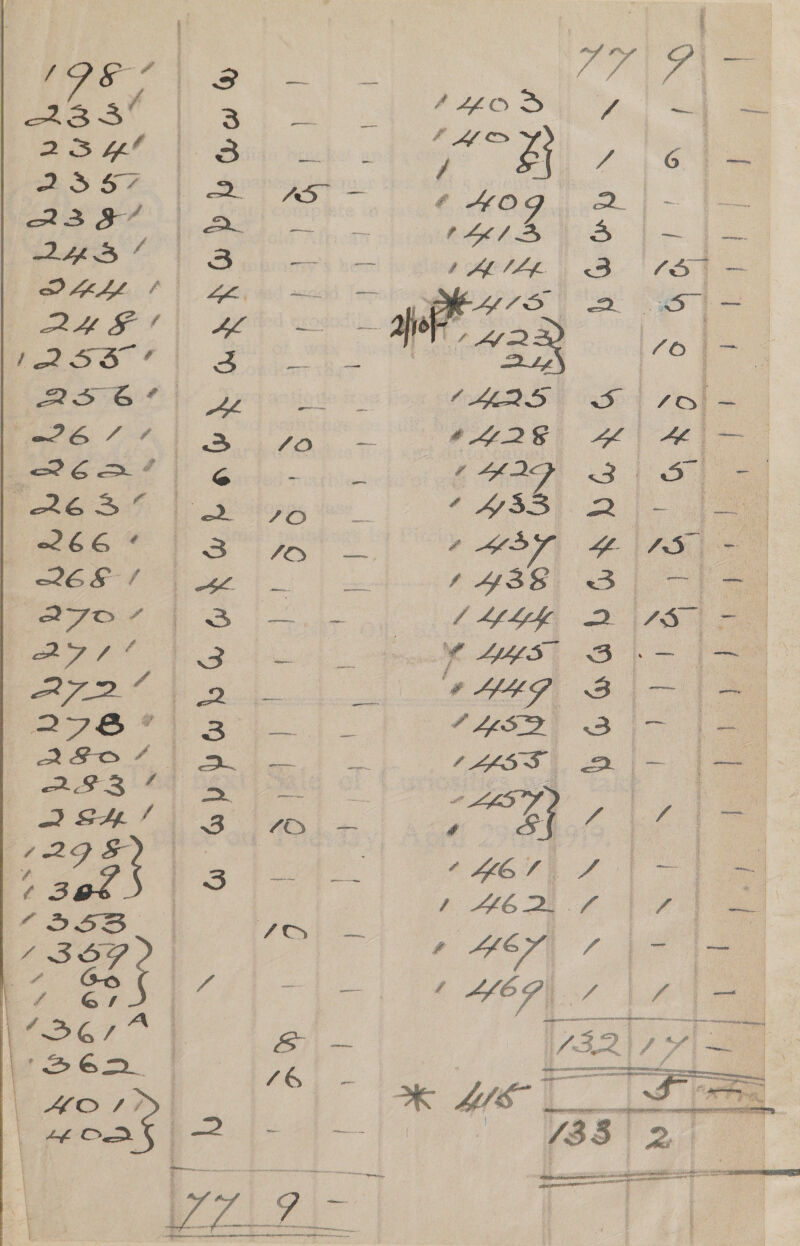 198' 3 — —
233' 3 — —
234' 3 — —
235' 2 15 —
238' 2 — —
243' 3 — —
244' 4 — —
248' 4 — —
'255' 3 — —
256' 4 — —
261' 3 10 —
262' 6 - —
263' 2 10 —
266' 3 10 —
268' 4 — —
270' 3 — —
271' 3 — —
272' 2 — —
278' 3 — —
280' 2 — —
283' 2 — —
284' 3 10 —
'298}
' 3 — —
'353 10 —
'359}
' 60
' 61} 1 — —
'361A 8 —
'362 16 -
401}
402} 2 - —
77 9 -
77 9 —
'403 1 — —
'407}
' 8} 1 6 —
'409 2 - —
'413 3 — —
'414 3 15 —
*415 2 5 —
2/10/- '423}
24} 10 —
'425 5 10 —
'428 4 4 —
'429 3 5 -
'433 2 - —
'437 4 15 -
'438 3 — —
'444 2 15 -
'445 3 — —
'449 3 — —
'452 3 — —
'455 2 — —
'457}
' 8} 1 1 —
'461 1 — —
'462 1 1 —
'467 1 - —
'469 1 1 —
132 17 —
* 415 5 — extra
133 2